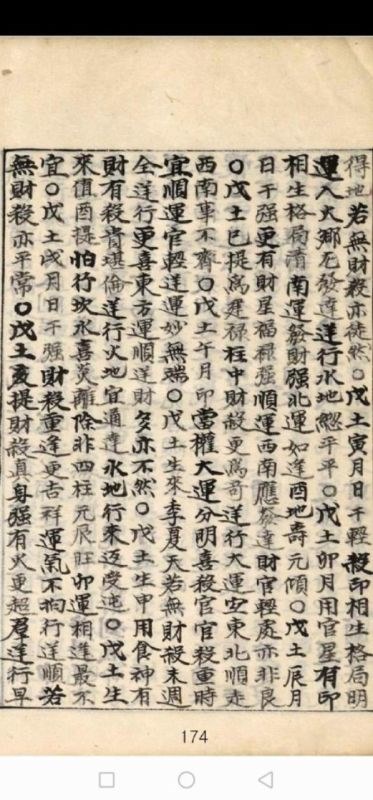 得地若無財殺亦徒然〇戊土寅月日干輕殺印相生格局明
運入火鄉尤發達逆行水地總平平〇戊土卯月用官星有印
相生格局清南運發財強北運如逢酉地壽元傾〇戊土辰月
日干强更有財星福祿强順運西南應發達財官輕處亦非良
〇戊土巳提爲建祿柱中財殺更爲奇逆行大運空東北順走
西南事不齊〇戊土午月印當權大運分明喜殺官官殺重時
宜順運官輕逆運妙無端〇戊土生來季夏天若無財殺未週
全逆行更喜東方運順逆財多亦不然〇戊土生申用食神有
財有殺肯堪倫逆行火地宜通達水地行來迍邅迍〇戊土生
來值酉提怕行坎水喜炎離除非四柱元辰旺卯運相逢最不
宜〇戊土戌月日干强財殺重逢更吉祥運氣不拘行逆順若
無財殺亦平常〇戊土亥提財殺真身强有火更超羣逆行早
174